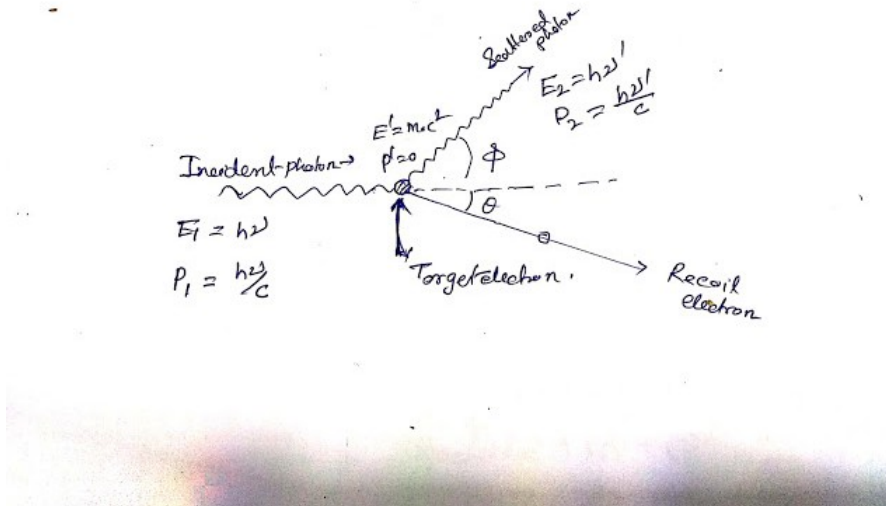 Scattered
photon
E₂ = hν'
P₂ = hν'/c
E' = m₀c²
p' = 0
ϕ
Incident photon→
θ
E₁ = hν
P₁ = hν/c
Target electron.
Recoil
electron